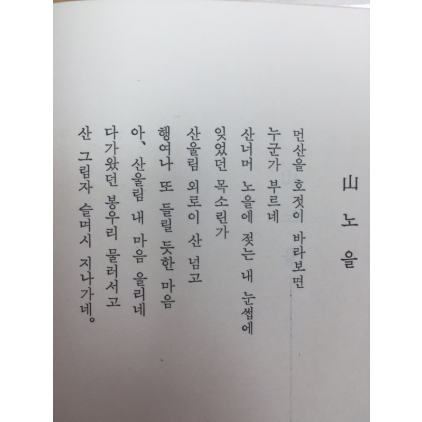 山 노 을
먼산을 호젓이 바라보면
누군가 부르네
산너머 노을에 젖는 내 눈썹에
잊었던 목소린가
산울림 외로이 산 넘고
행여나 또 들릴 듯한 마음
아、산울림 내 마음 울리네
다가왔던 봉우리 물러서고
산 그림자 슬며시 지나가네。